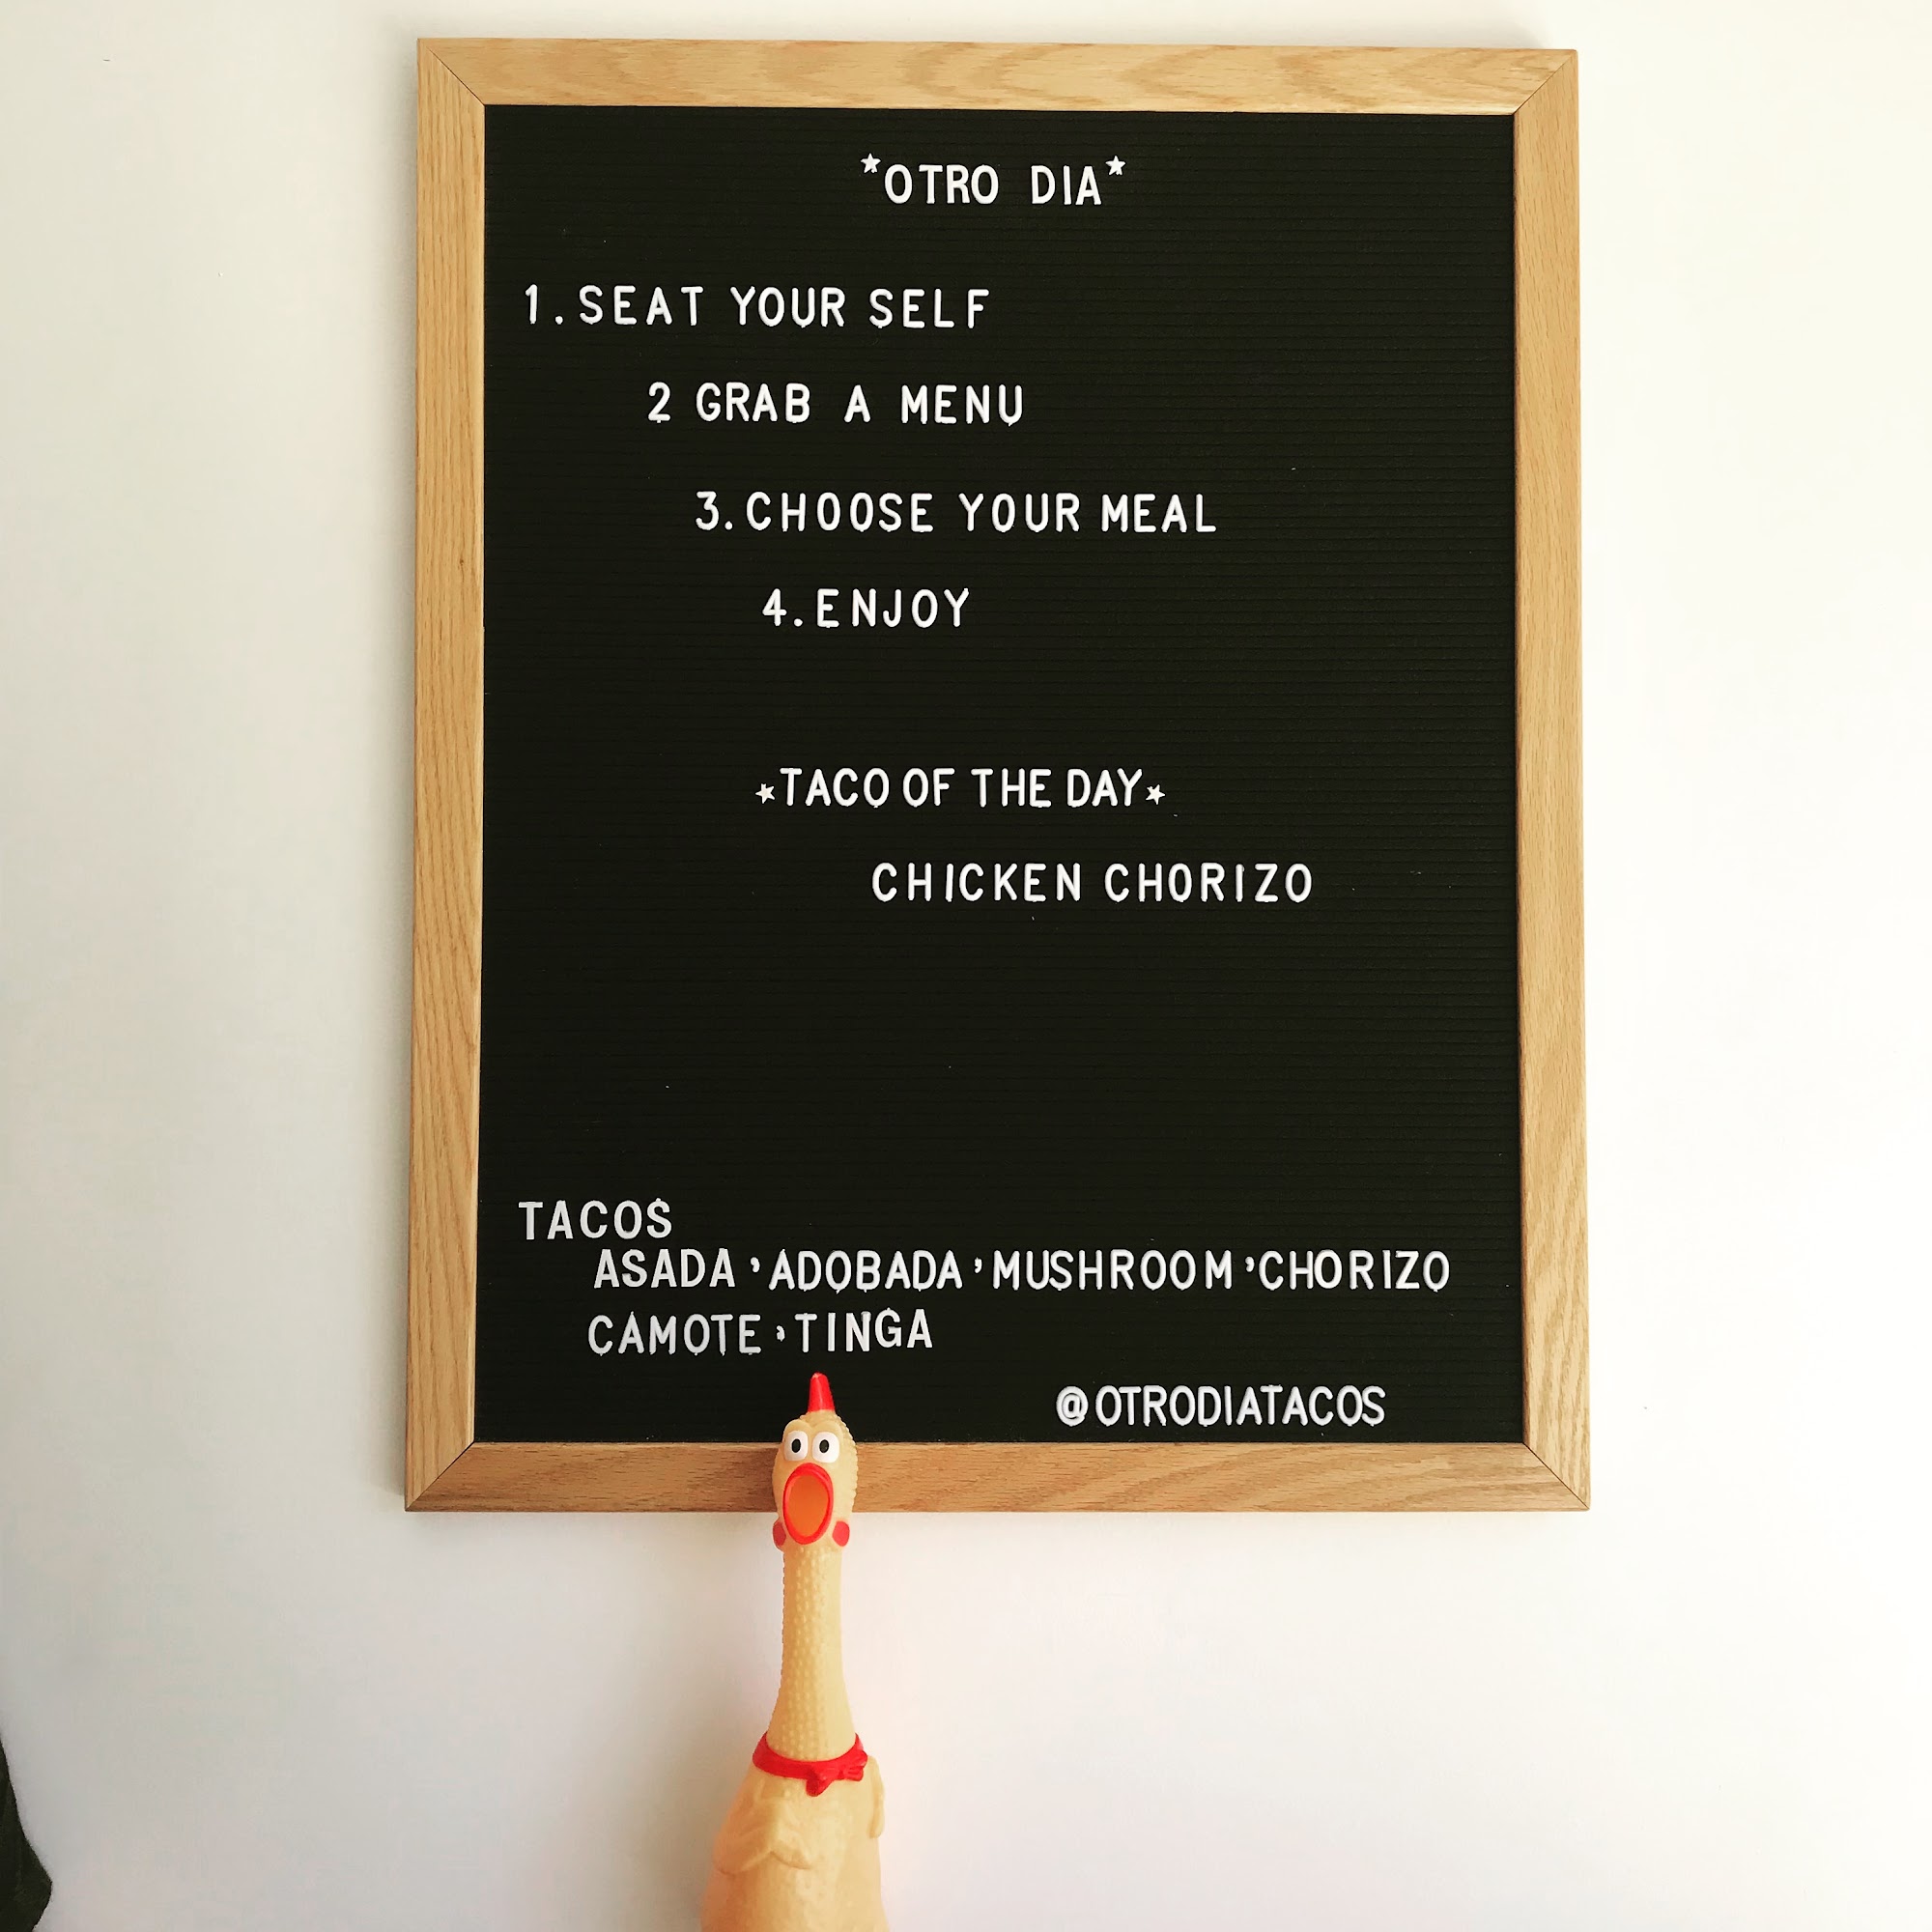 *OTRO DIA*
1. SEAT YOUR SELF
2 GRAB A MENU
3. CHOOSE YOUR MEAL
4. ENJOY
*TACO OF THE DAY*
CHICKEN CHORIZO
TACOS
ASADA, ADOBADA, MUSHROOM, CHORIZO
CAMOTE, TINGA
@OTRODIATACOS